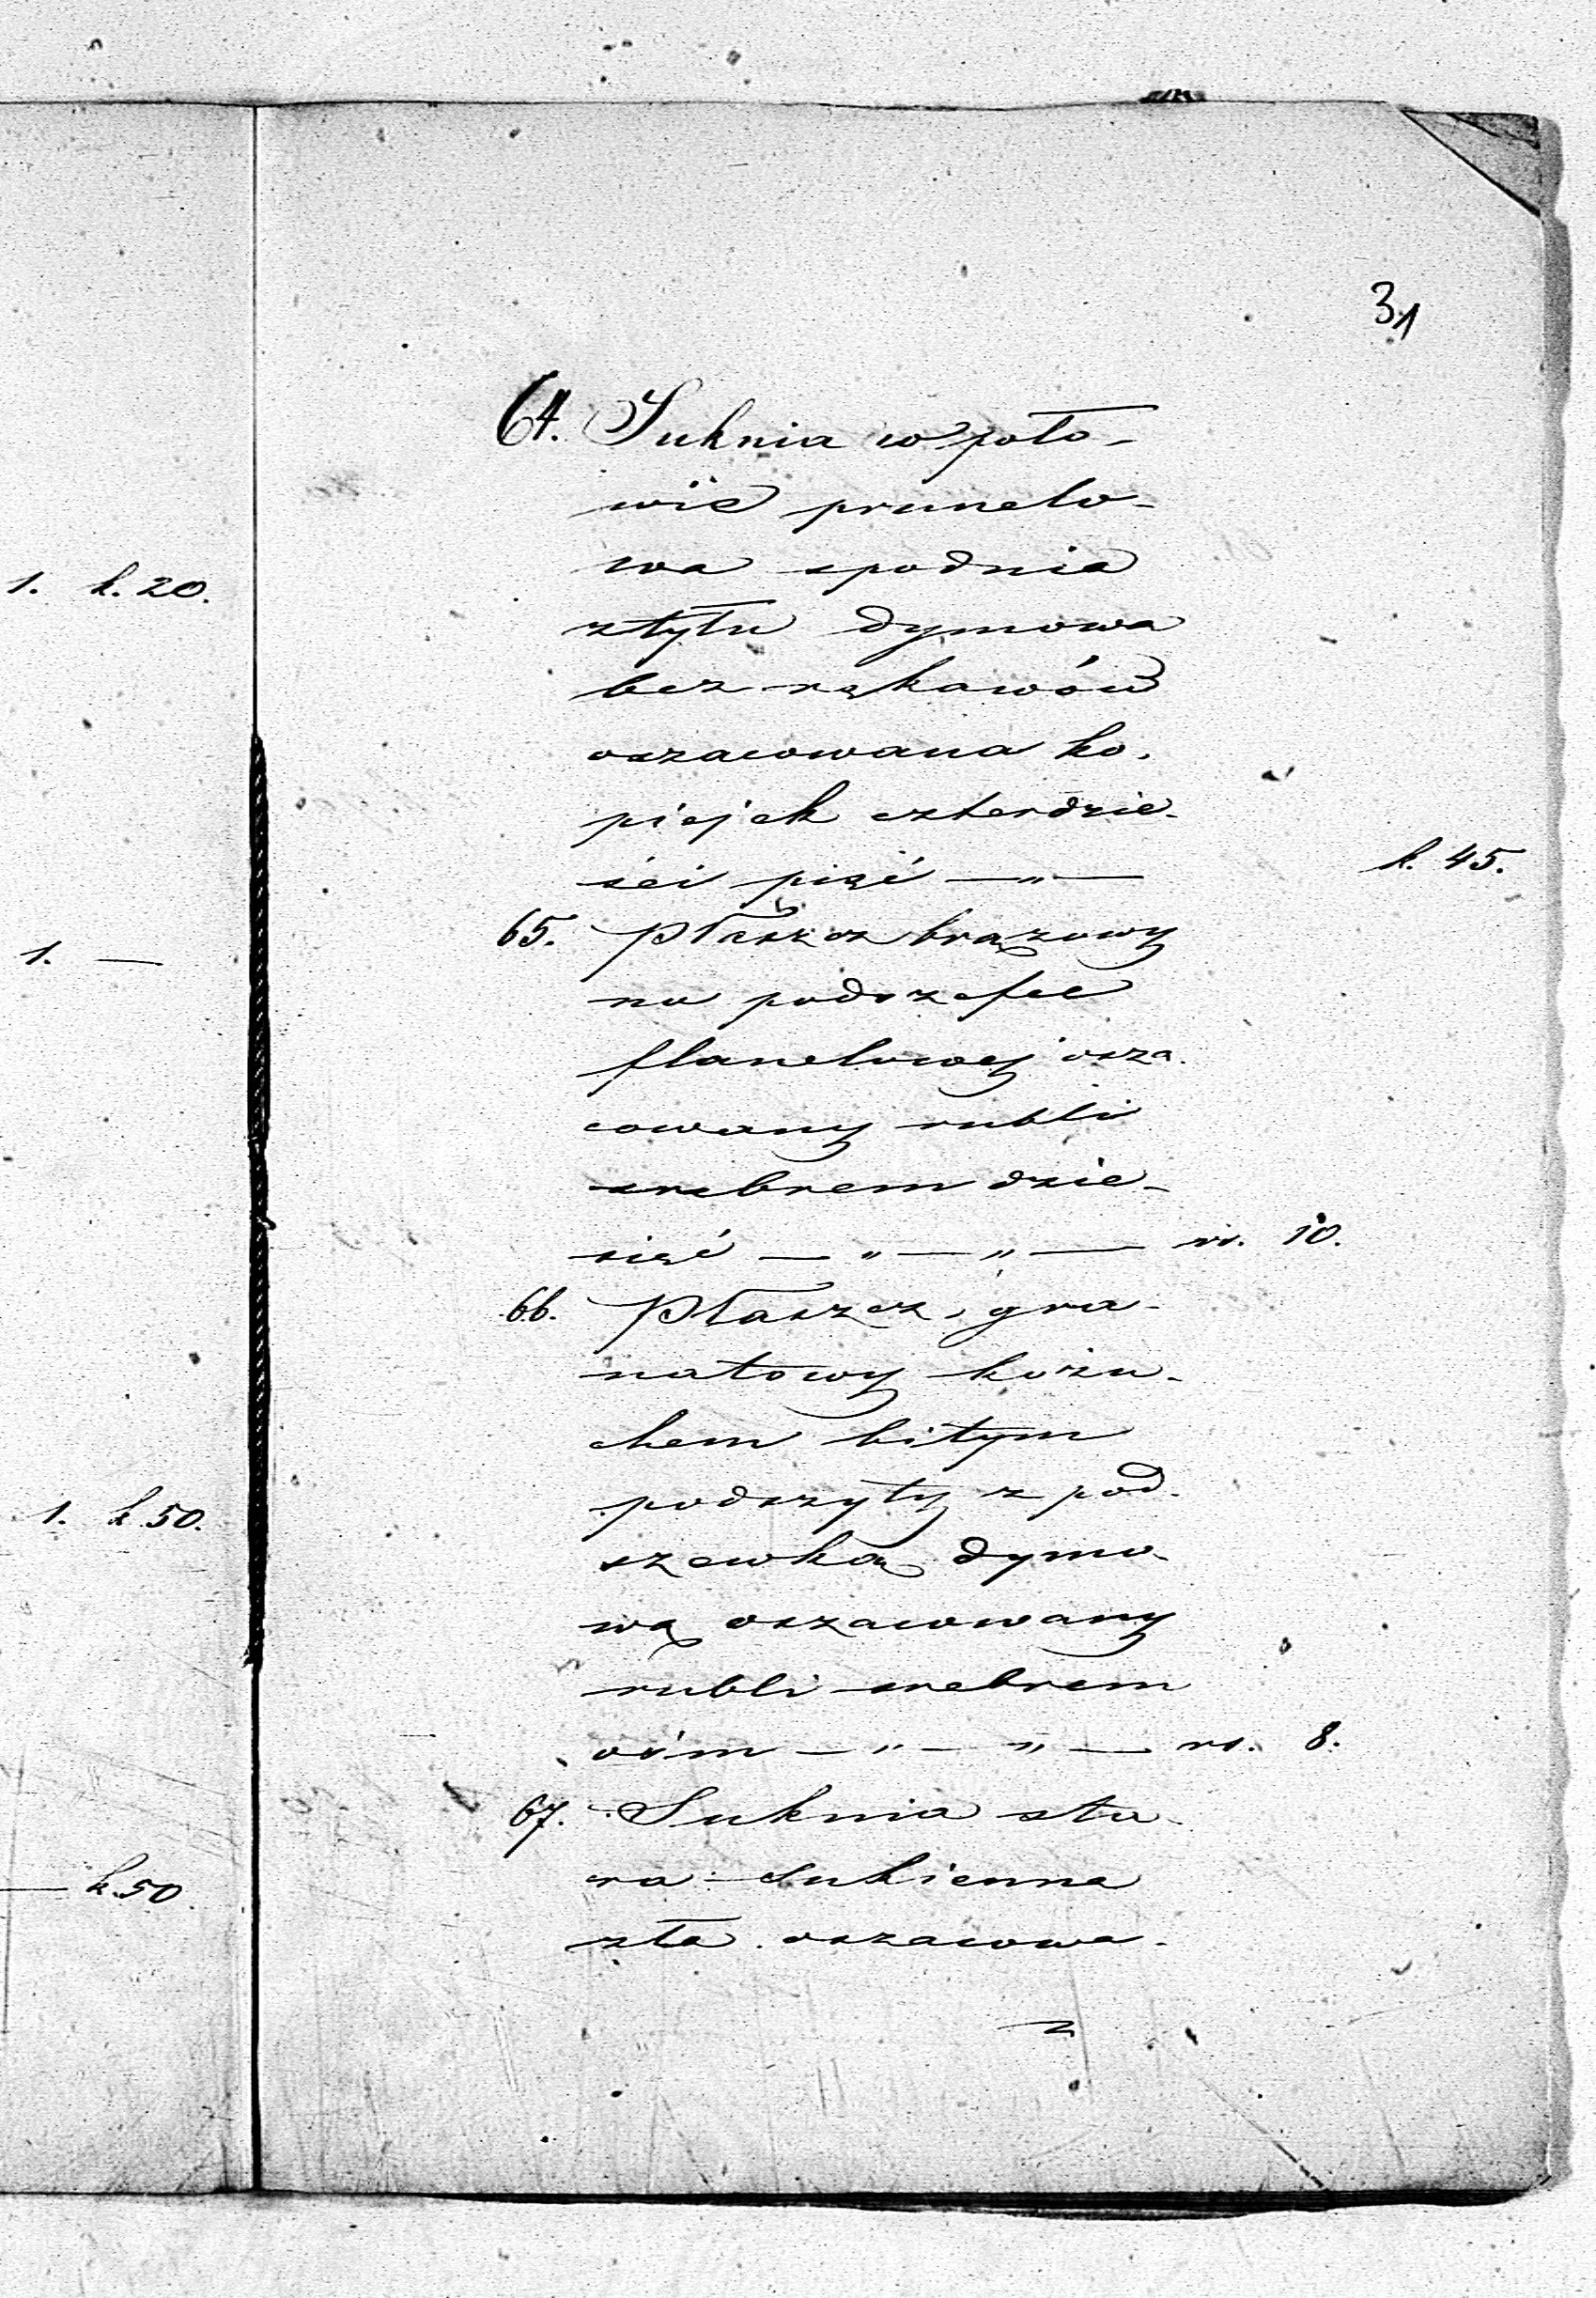 31
64. Suknia w poło-
wie prunelo-
wa spodnia
ztyłu dymowa
bez rękawów
oszacowana ko-
piejek czterdzie-
ści pięć — „ — k. 45.
65. Płaszcz brązowy
na podszefce
flanelowej osza-
cowany rubli
srebrem dzie-
sięć — „ — „ — rs. 10.
66. Płaszcz gra-
natowy kożu-
chem bitym
podszyty z pod-
szewką dymo-
wą oszacowany
rubli srebrem
ośm — „ — „ — rs. 8.
67. Suknia sta-
ra Sukienna
zła oszacowa-
1. k. 20.
1. —
1. k. 50.
— k. 50